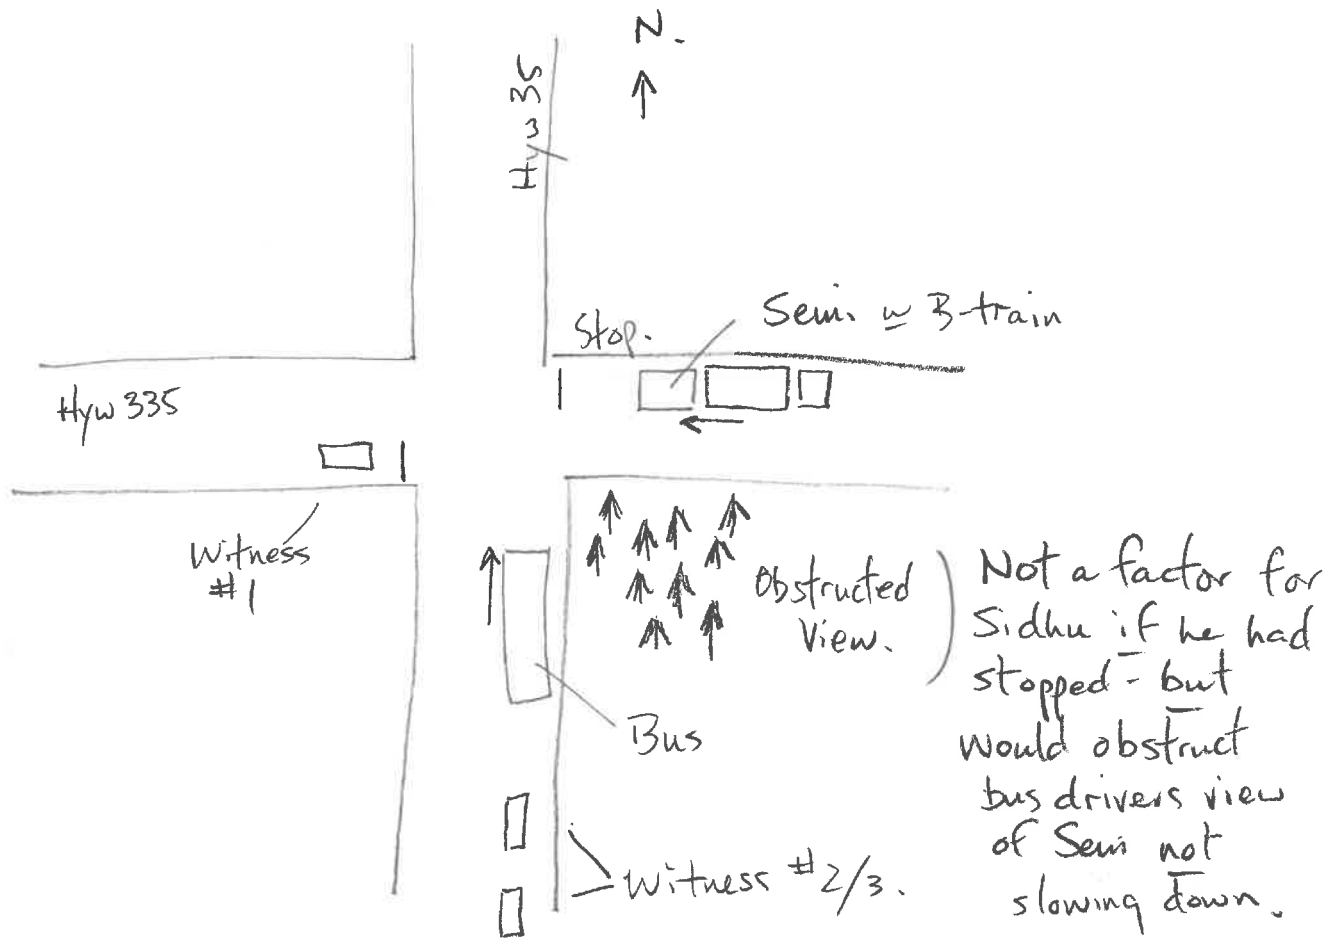 N.
Hyw 35
Stop.
Semi w B-train
Hyw 335
Witness
#1
Obstructed
View.
Not a factor for
Sidhu if he had
stopped - but
would obstruct
bus drivers view
of Semi not
slowing down.
Bus
Witness #2/3.